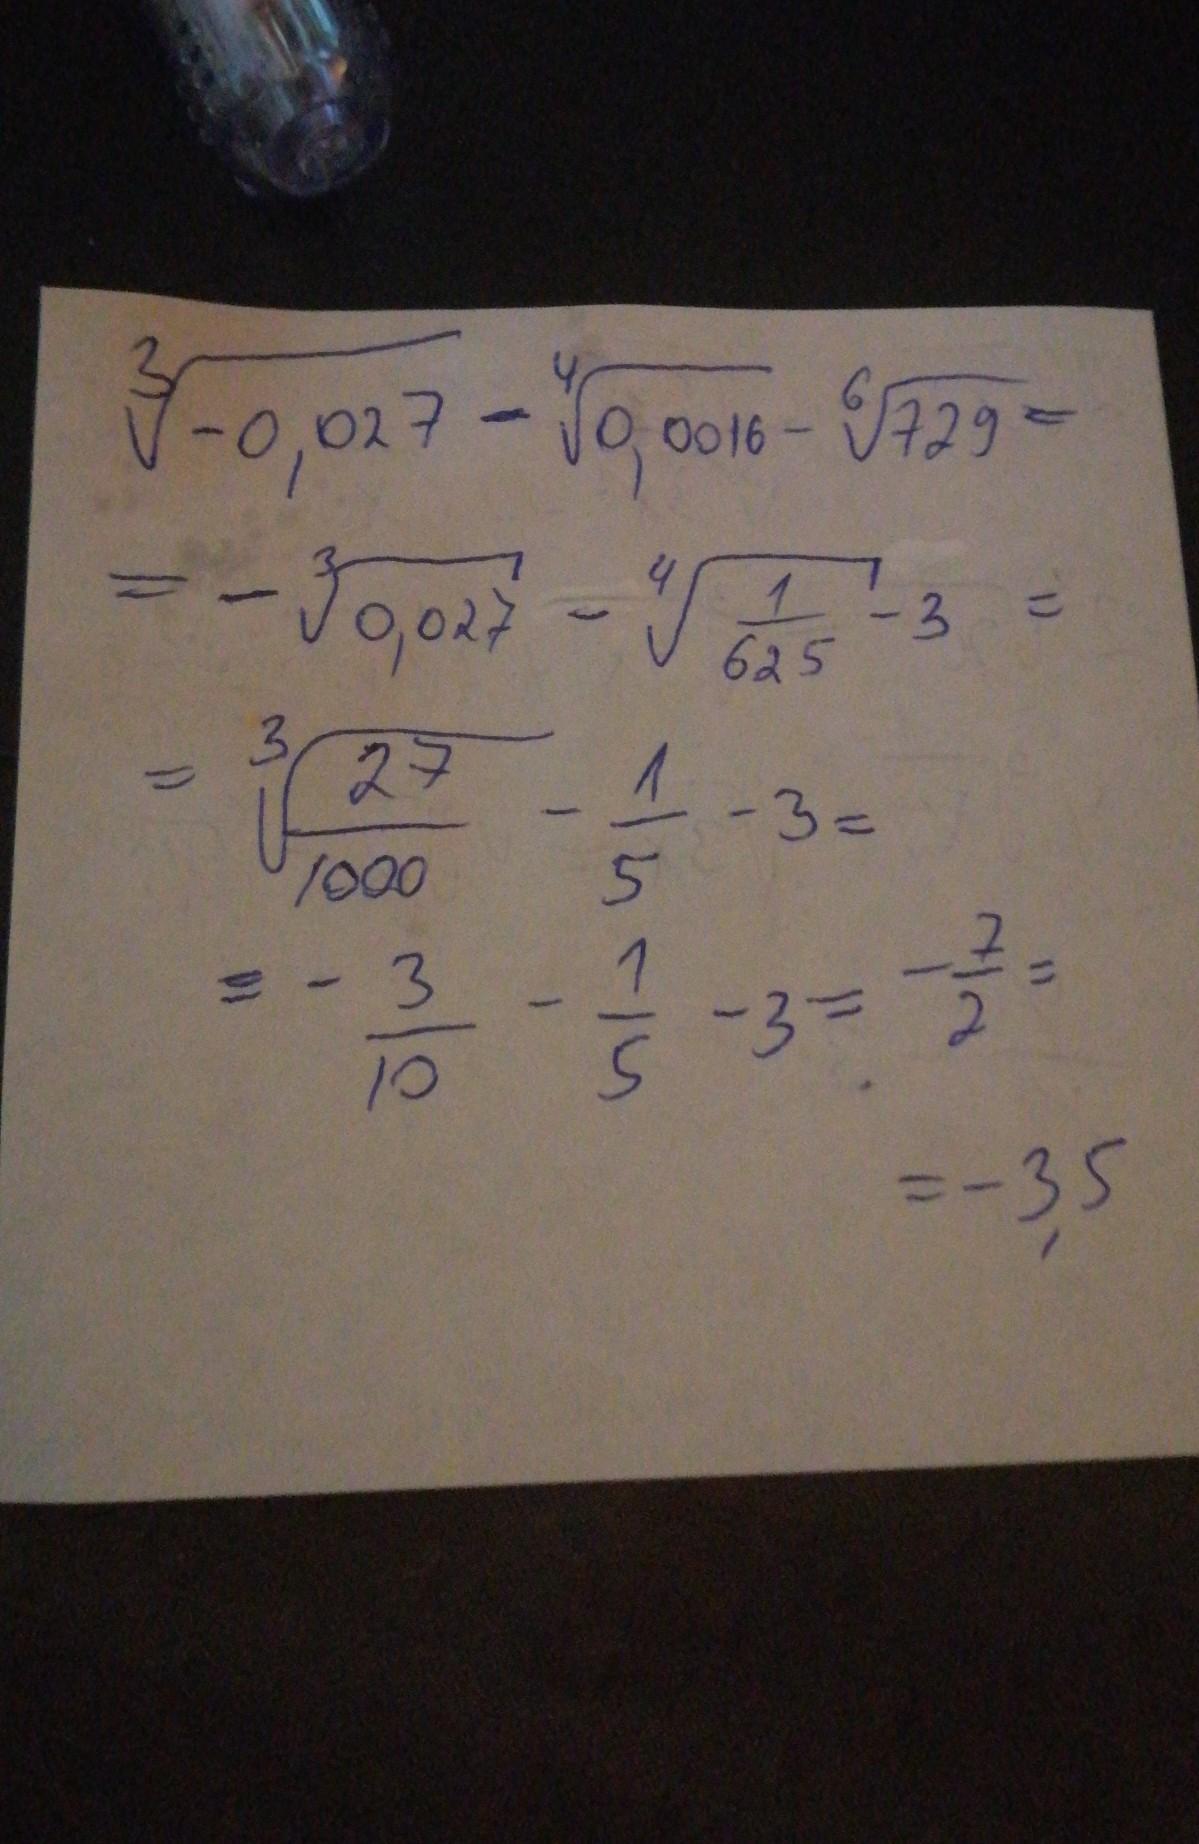 ∛-0,027 - ∜0,0016 - ⁶√729 =
= - ∛0,027 - ∜1/625 - 3 =
= ∛27/1000 - 1/5 - 3 =
= - 3/10 - 1/5 - 3 = - 7/2 =
= - 3,5